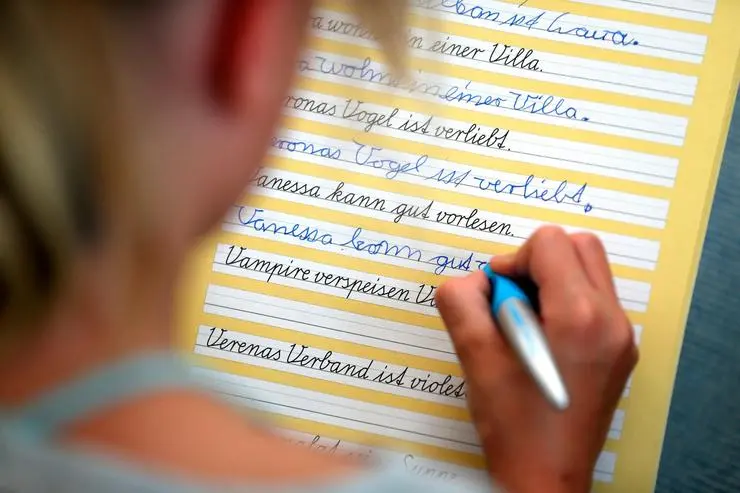 ist Laura.
in einer Villa.
wohnt in einer Villa.
ronas Vogel ist verliebt.
ronas Vogel ist verliebt.
Vanessa kann gut vorlesen.
Vanessa kann gut
Vampire verspeisen
Verenas Verband ist violett